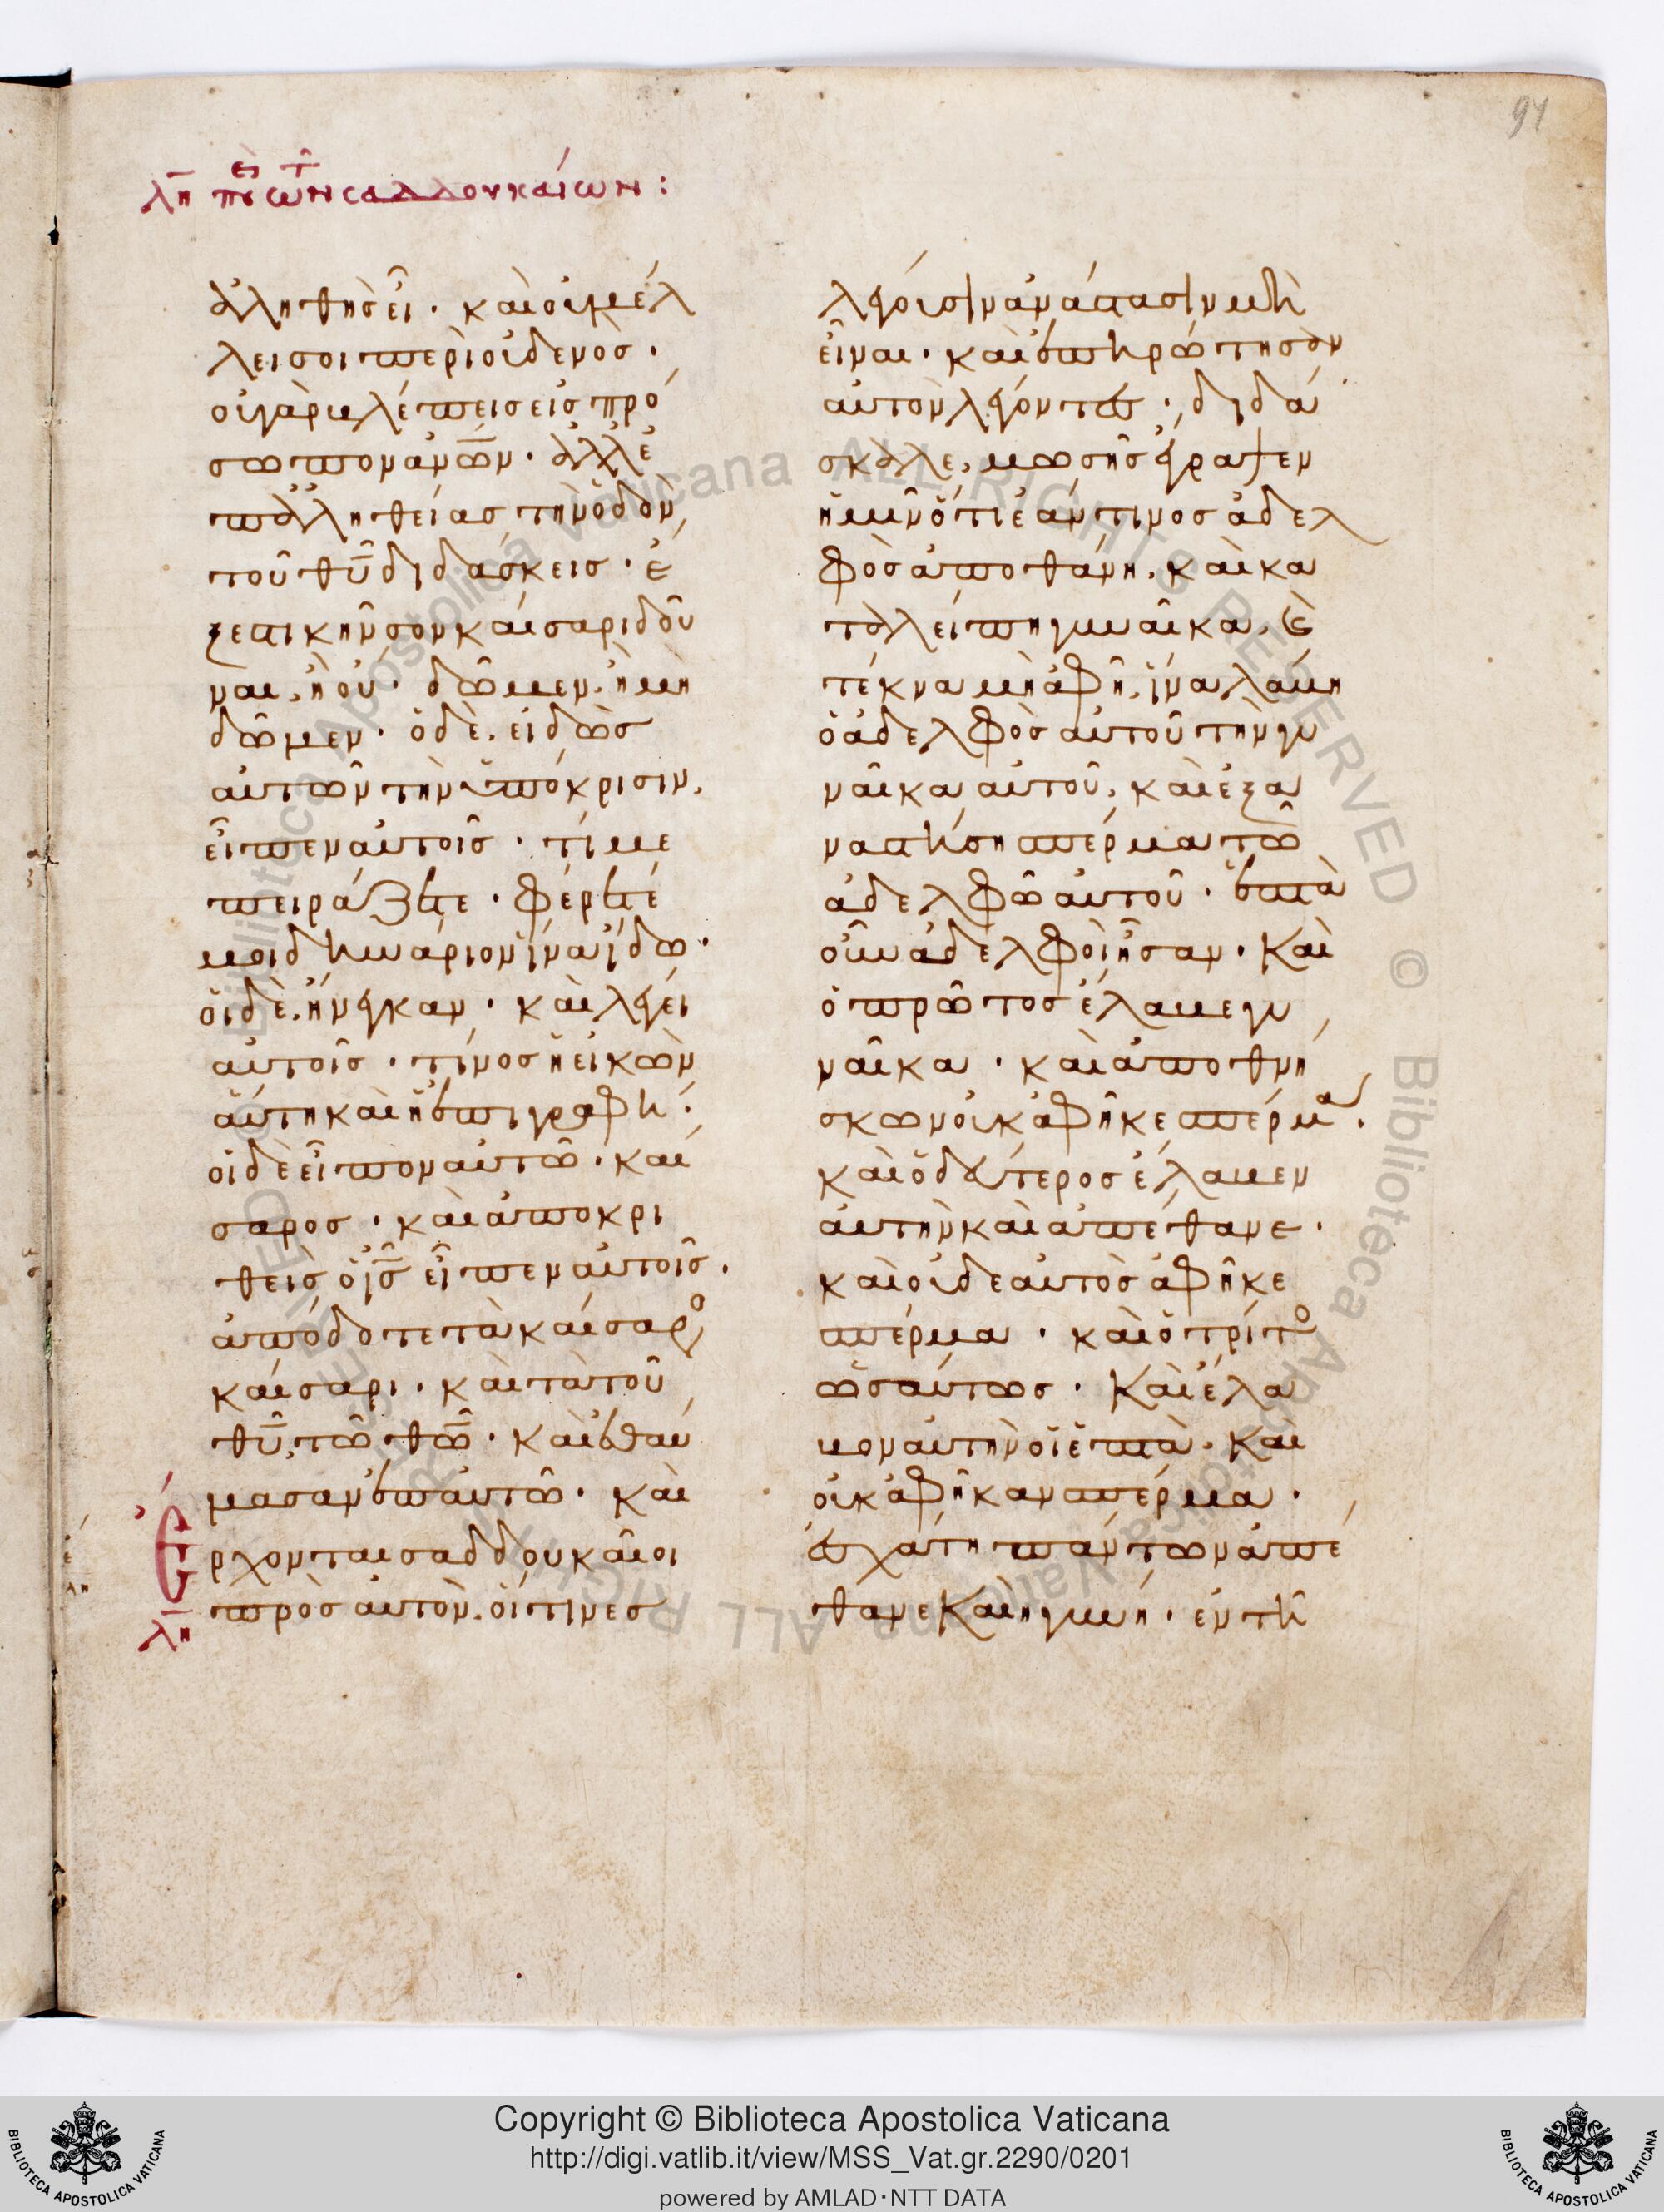 91
λη περι τῶν σαδδουκαίων:
ἀληθὴς εἶ· καὶ οὐ μέλ
λει σοι περὶ οὐδενός·
οὐ γὰρ βλέπεις εἰς πρό
σωπον ἀνων̅· ἀλλ' ἐ
π' ἀληθείας τὴν ὁδὸν
τοῦ θυ̅ διδάσκεις· ἔ
ξεστι κῆνσον καίσαρι δοῦ
ναι, ἢ οὔ· δῶμεν, ἢ μὴ
δῶμεν· ὁ δὲ, εἰδὼς
αὐτῶν τὴν ὑπόκρισιν,
εἶπεν αὐτοῖς· τί με
πειράζετε· φέρετέ
μοι δηνάριον ἵνα ἴδω·
οἱ δὲ, ἤνεγκαν· καὶ λέγει
αὐτοῖς· τίνος ἡ εἰκὼν
αὕτη καὶ ἡ ἐπιγραφή·
οἱ δὲ εἶπον αὐτῶ· καί
σαρος· καὶ ἀποκρι
θεὶς ὁ ις̅ εἶπεν αὐτοῖς·
ἀπόδοτε τὰ καίσαρο
καίσαρι· καὶ τὰ τοῦ
θυ̅, τῶ θω̅· καὶ ἐθαύ
μασαν ἐπ' αὐτῶ· καὶ
ἔρχονται σαδδουκαῖοι
λη πρὸς αὐτὸν, οἵτινες
λέγουσιν ἀνάστασιν μὴ
εἶναι· καὶ ἐπηρώτησαν
αὐτὸν λέγοντες· διδά
σκαλε, μωσῆς ἔγραψεν
ἡμῖν ὅτι ἐάν τινος ἀδελ
φὸς ἀποθάνη, καὶ κα
ταλείπη γυναῖκα, καὶ
τέκνα μὴ ἀφῆ, ἵνα λάβη
ὁ ἀδελφὸς αὐτοῦ τὴν γυ
ναῖκα αὐτοῦ, καὶ ἐξα
ναστήση σπέρμα τῶ
ἀδελφῶ αὐτοῦ· ἑπτὰ
οὖν ἀδελφοὶ ἦσαν· Καὶ
ὁ πρῶτος ἔλαβε γυ
ναῖκα· καὶ ἀποθνή
σκων οὐκ ἀφῆκε σπέρμα·
καὶ ὁ δεύτερος ἔλαβεν
αὐτὴν καὶ ἀπέθανε·
καὶ οὐδὲ αὐτὸς ἀφῆκε
σπέρμα· καὶ ὁ τρίτο
ὡσαύτως· Καὶ ἔλα
βον αὐτὴν οἱ ἑπτὰ· Καὶ
οὐκ ἀφῆκαν σπέρμα·
ἐσχάτη πάντων ἀπέ
θανε Καὶ ἡ γυνή· ἐν τῆ
Copyright © Biblioteca Apostolica Vaticana
http://digi.vatlib.it/view/MSS_Vat.gr.2290/0201
powered by AMLAD·NTT DATA
BIBLIOTECA APOSTOLICA VATICANA
BIBLIOTECA APOSTOLICA VATICANA
© Biblioteca Apostolica Vaticana ALL RIGHTS RESERVED